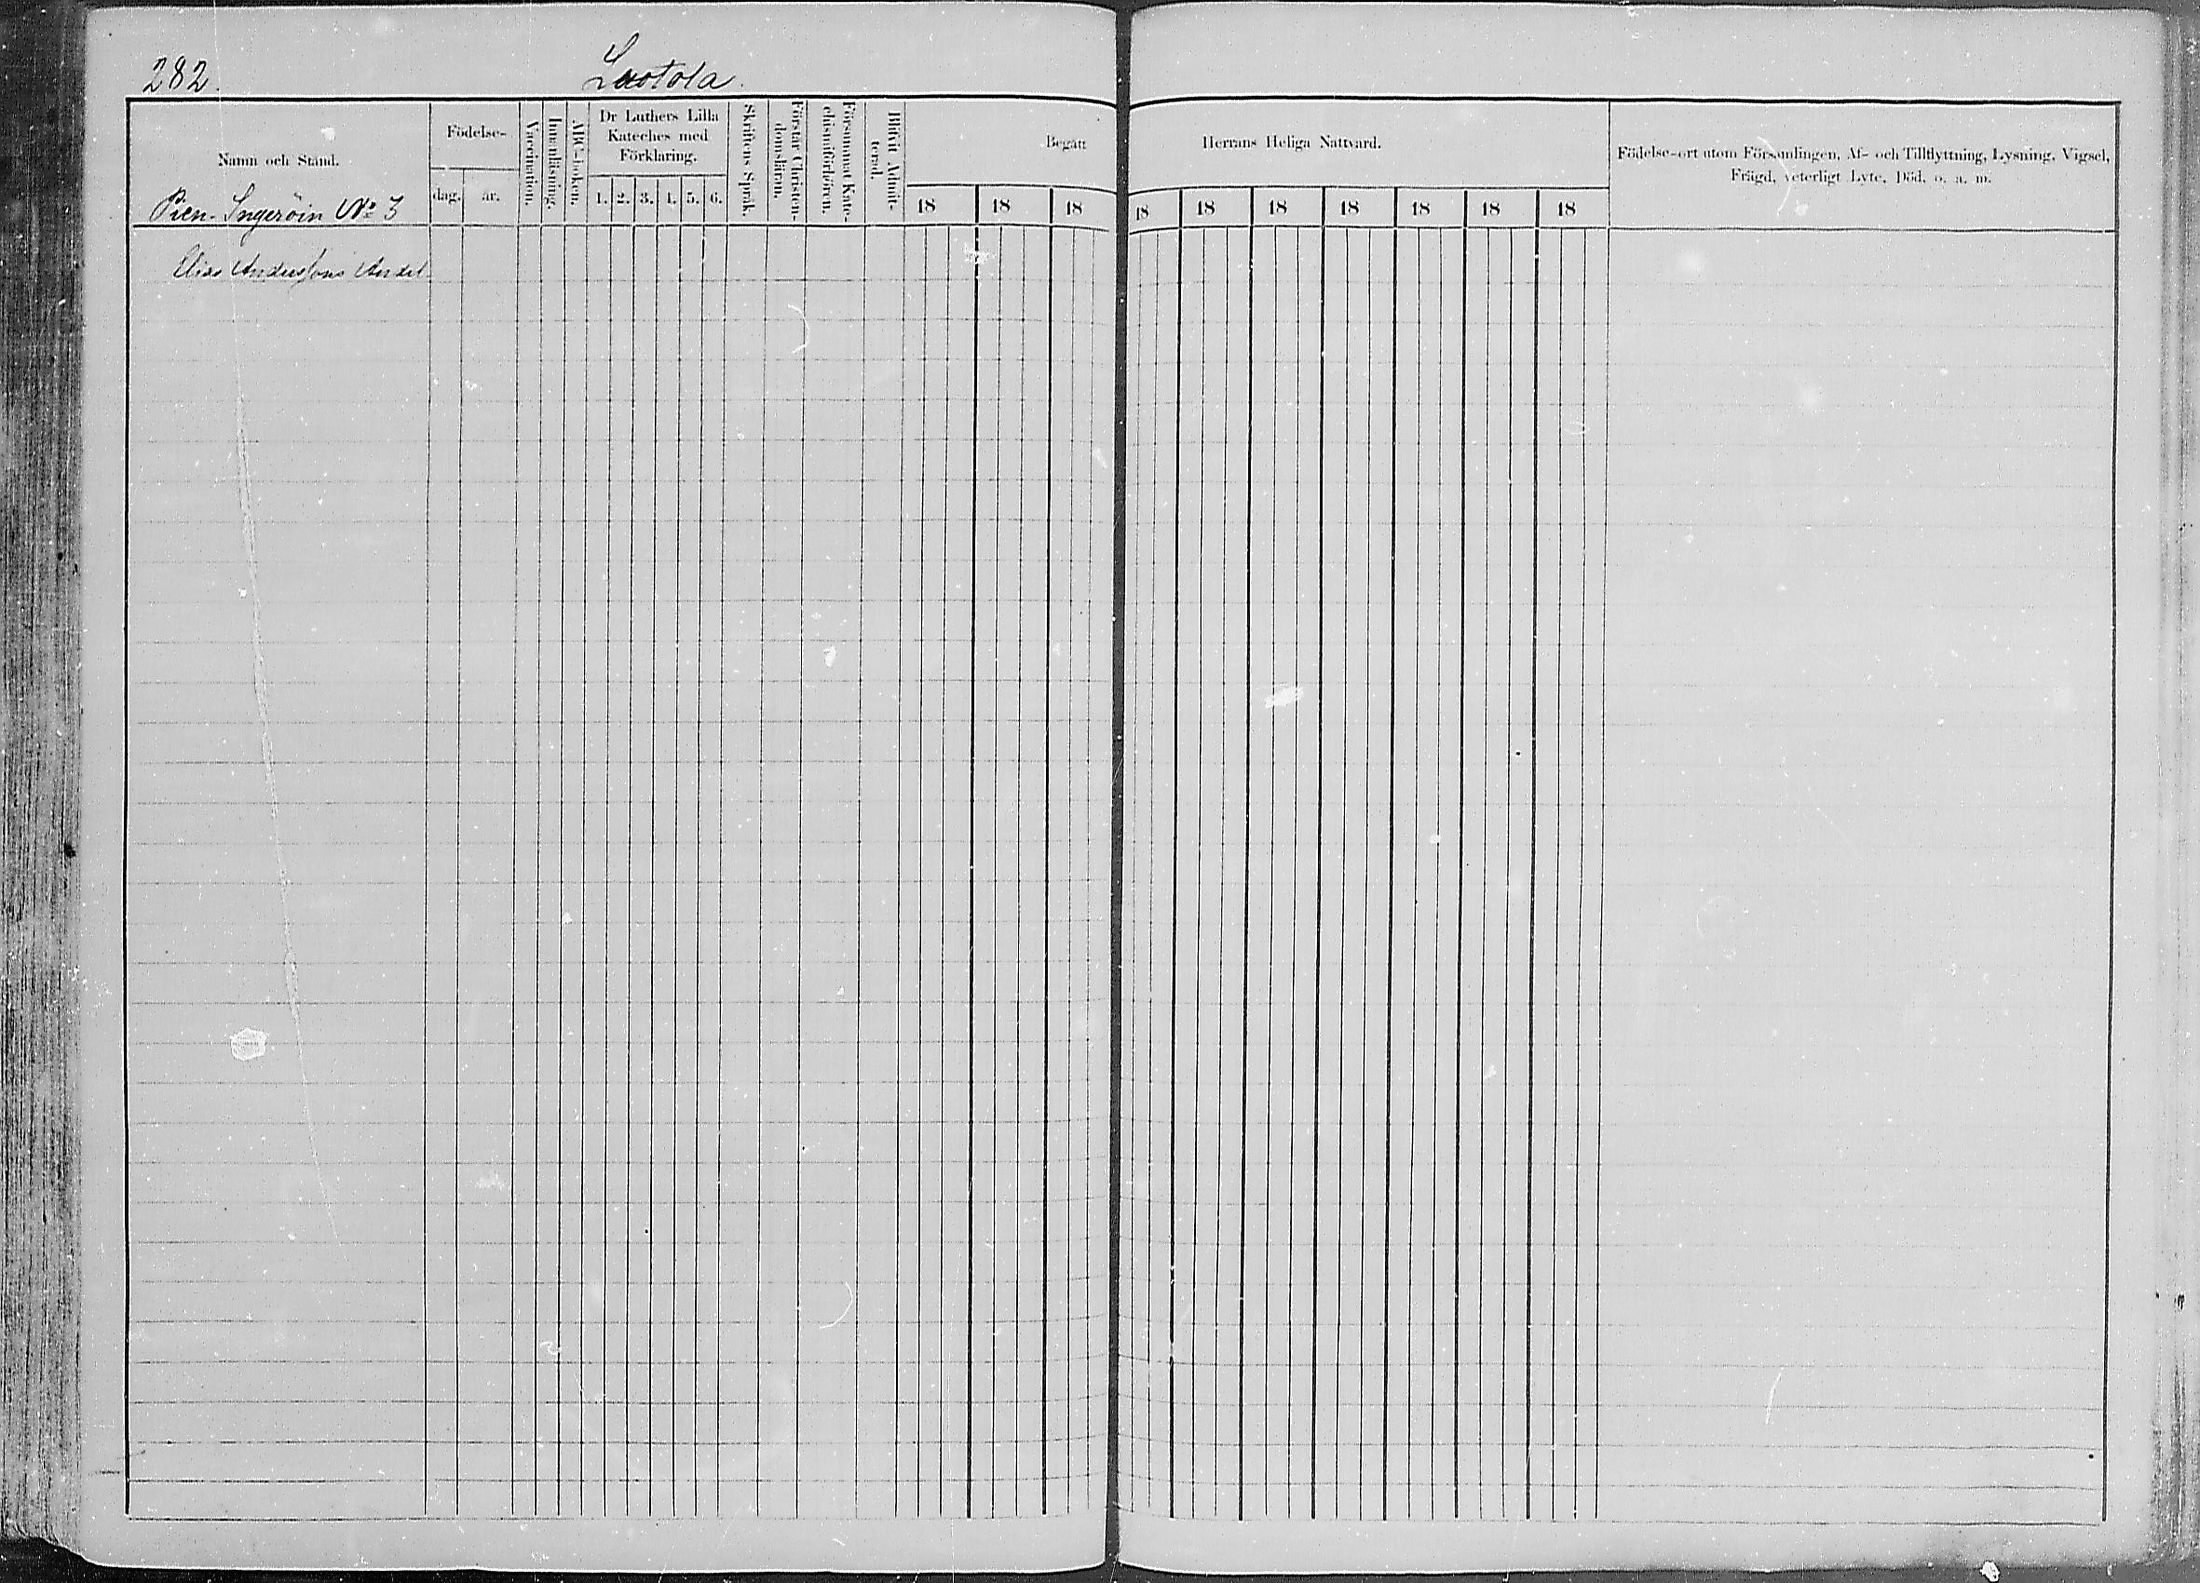 282.
Luotola.
Namn och Stånd.
Födelse-
dag.
år.
Vaccination.
Innanläsning.
ABC-boken.
Dr Luthers Lilla
Kateches med
Förklaring.
1. 2. 3. 4. 5. 6.
Skriftens Språk.
Förstår Christen-
domsläran.
Försummat Kate-
chismiförhören.
Blifvit Admit-
terad.
Begått
Herrans Heliga Nattvard.
18 18 18 18 18 18 18 18 18 18
Födelse-ort utom Församlingen, Af- och Tillflyttning, Lysning, Vigsel,
Frägd, veterligt Lyte, Död, o. a. m.
Pien-Ingeröin No 3
Elias Anderssons Andel